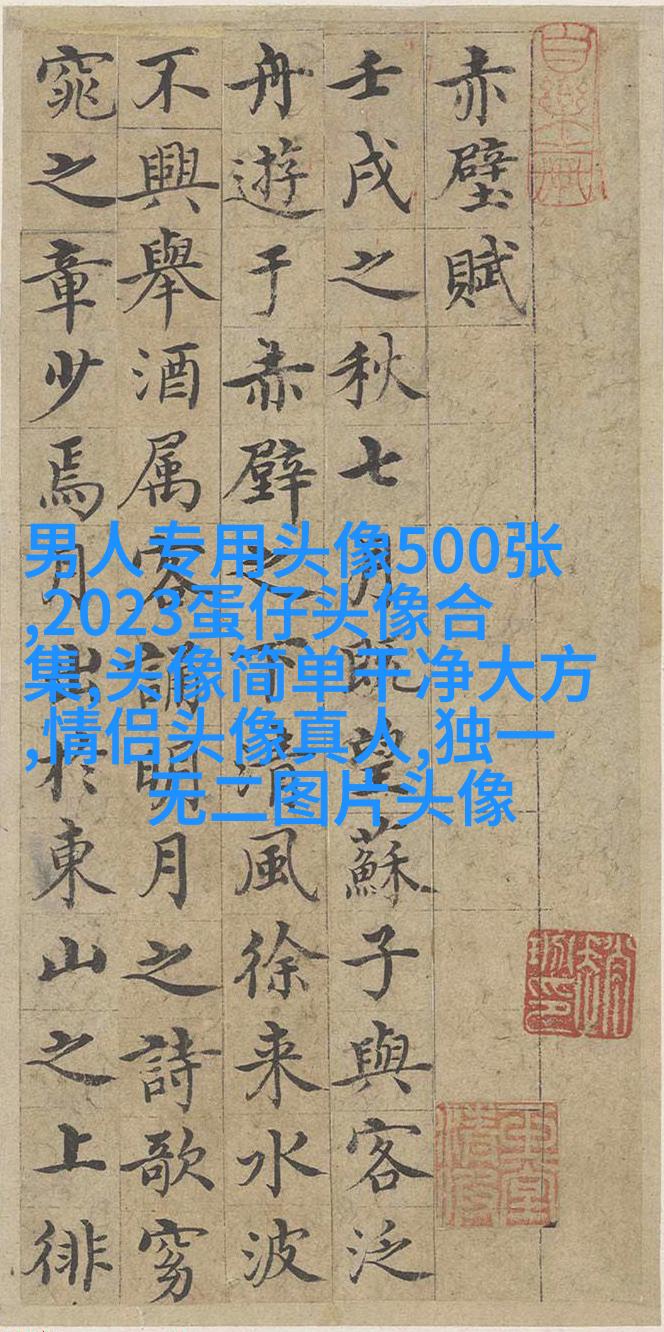 赤壁賦
壬戌之秋七月既望蘇子與客泛
舟遊于赤壁之下清風徐来水波
不興舉酒属客誦明月之詩歌窈
窕之章少焉月出於東山之上徘
男人专用头像500张
,2023蛋仔头像合
集,头像简单干净大方
,情侣头像真人,独一
无二图片头像